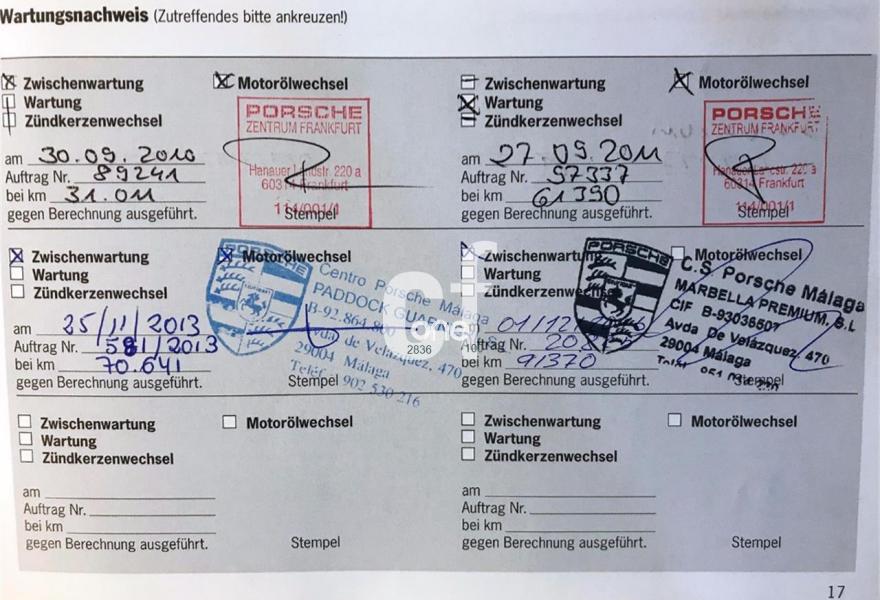 Wartungsnachweis (Zutreffendes bitte ankreuzen!)
Zwischenwartung
Motorölwechsel
Wartung
Zündkerzenwechsel
PORSCHE
ZENTRUM FRANKFURT
Hanauer Landstr. 220 a
60314 Frankfurt
114/001/1
am 30.09.2010
Auftrag Nr. 89241
bei km 31.011
gegen Berechnung ausgeführt.
Stempel
Zwischenwartung
Motorölwechsel
Wartung
Zündkerzenwechsel
PORSCHE
ZENTRUM FRANKFURT
220 a
60314 Frankfurt
114/001/1
am 27.09.2011
Auftrag Nr. 57337
bei km 61390
gegen Berechnung ausgeführt.
Stempel
Zwischenwartung
Motorölwechsel
Wartung
Zündkerzenwechsel
PORSCHE
Centro Porsche Málaga
PADDOCK
B-92.864
de Velázquez, 470
29004 Málaga
Teléf. 902 530 216
am 25/11/2013
Auftrag Nr. 581/2013
bei km 70.641
gegen Berechnung ausgeführt.
Stempel
Zwischenwartung
Motorölwechsel
Wartung
Zündkerzenwechsel
PORSCHE
C.S. Porsche Málaga
MARBELLA PREMIUM, S.L
CIF B-93036507
Avda De Velázquez, 470
29004 Málaga
am 01/12
Auftrag Nr.
bei km 91370
gegen Berechnung ausgeführt.
Stempel
cf
one
2836
Zwischenwartung
Motorölwechsel
Wartung
Zündkerzenwechsel
am
Auftrag Nr.
bei km
gegen Berechnung ausgeführt.
Stempel
Zwischenwartung
Motorölwechsel
Wartung
Zündkerzenwechsel
am
Auftrag Nr.
bei km
gegen Berechnung ausgeführt.
Stempel
17